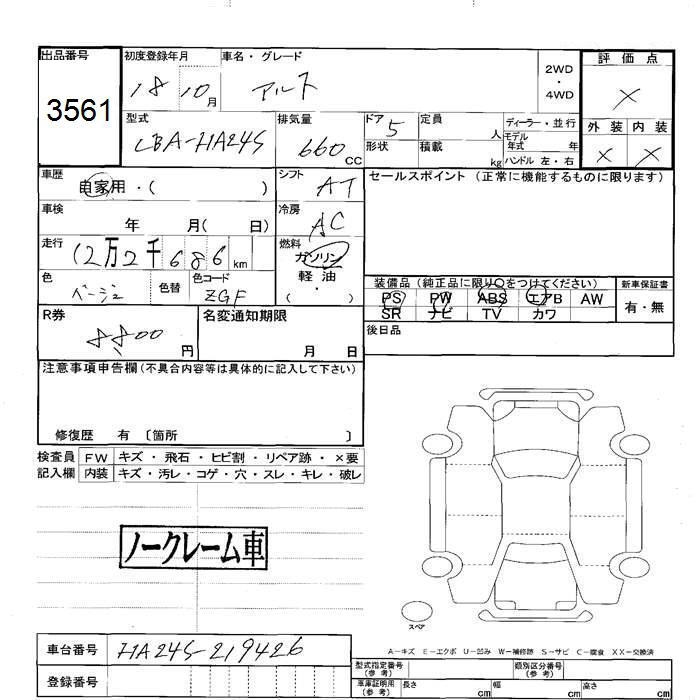 出品番号 初度登録年月 車名・グレード 2WD・4WD 評価点
3561 18 10月 アルト X
型式 排気量 ドア 5 定員 人 ディーラー・並行 外装 内装
CBA-HA24S 660cc 形状 積載 kg モデル年式 年 X X
ハンドル 左・右
車歴 自家用・( ) シフト AT セールスポイント (正常に機能するものに限ります)
車検 年 月( 日) 冷房 AC
走行 12万2千686km 燃料 ガソリン
軽油・( )
色 ベージュ 色替 色コード ZGF
装備品 (純正品に限り○をつけてください) 新車保証書
PS PW ABS エアB AW 有・無
SR ナビ TV カワ
R券 8800円 名変通知期限 月 日 後日品
注意事項申告欄(不具合内容等は具体的に記入して下さい)
修復歴 有 〔箇所 〕
検査員 FW キズ・飛石・ヒビ割・リペア跡・×要
記入欄 内装 キズ・汚レ・コゲ・穴・スレ・キレ・破レ
ノークレーム車
スペア
A-キズ E-エクボ U-凹み W-補修跡 S-サビ C-腐食 XX-交換済
車台番号 HA24S-219426
型式指定番号(参考) 類別区分番号(参考)
登録番号 車庫証明用(参考) 長さ cm 幅 cm 高さ cm